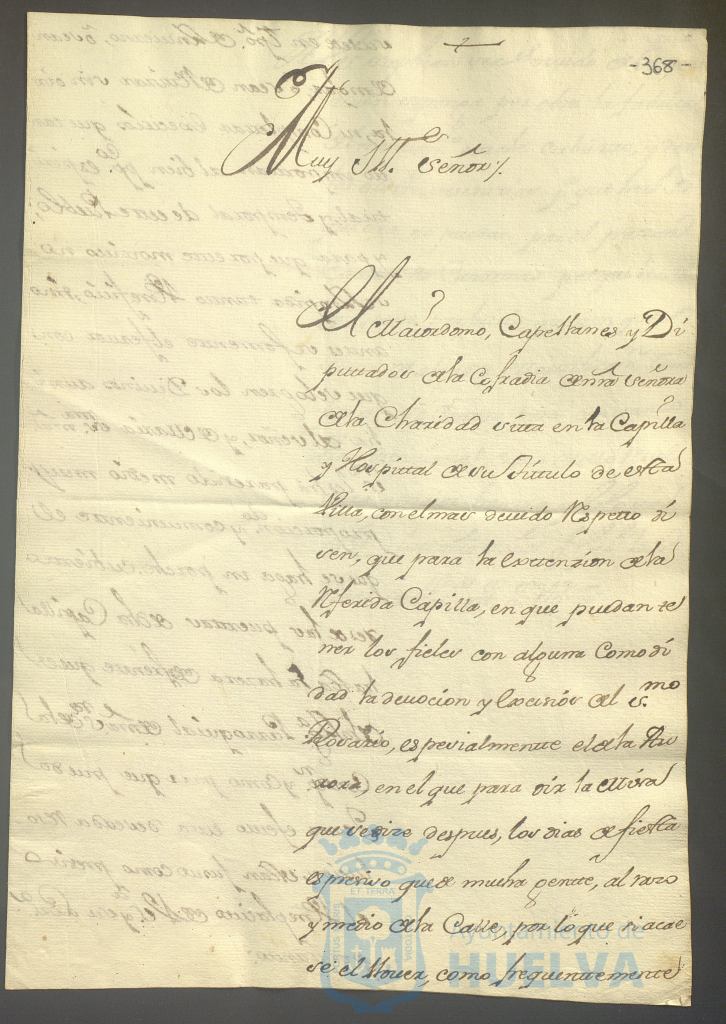 -368-
Muy Ill.e Señor.
El Maiordomo, Capellanes y Di
puttados de la Cofradia de nrã Señora
de la Charidad sitta en la Capilla
y Hospittal de su Titulo de esta
Villa, con el mas devido Respetto di
sen, que para la Extenzion de la
Referida Capilla, en que puedan te
ner los fieles con alguna Comodi
dad la devocion y Exersisios del S.mo
Rosario, espesialmentte el de la Au
rora, en el que para oir la Missa
que se dize despues, los dias de fiesta
es presiso quede mucha gentte, al razo
y medio de la Calle, por lo que si acae
se el llover, como frequentementte
ET TERRA
Ayuntamiento de
HUELVA